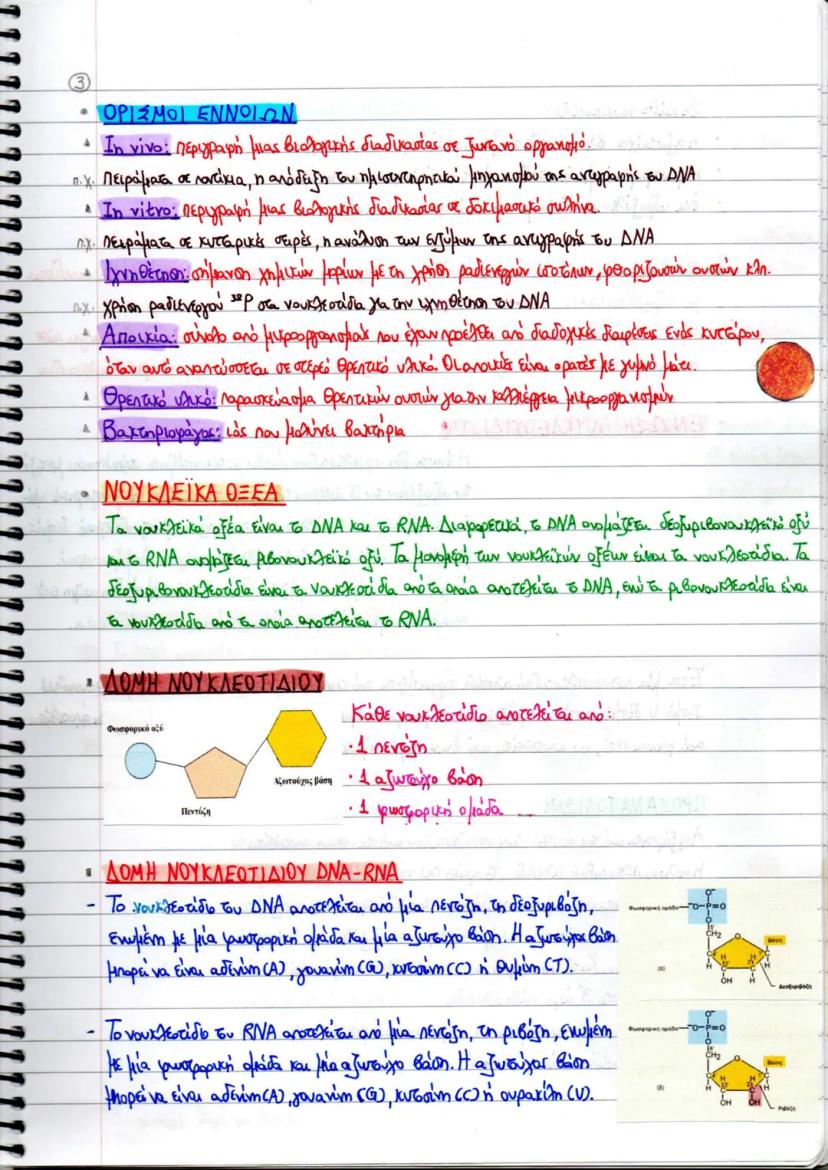 3
• ΟΡΙΣΜΟΙ ΕΝΝΟΙΩΝ
In vivo: περιγραφή μιας βιολογικής διαδικασίας σε ζωντανό οργανισμό.
π.χ. πειράματα σε ποντίκια, η απόδειξη του ημισυντηρητικού μηχανισμού της αντιγραφής του DNA
In vitro: περιγραφή μιας βιολογικής διαδικασίας σε δοκιμαστικό σωλήνα.
π.χ. πειράματα σε κυτταρικές σειρές, η ανάλυση των ενζύμων της αντιγραφής του DNA
Ιχνηθέτηση: σήμανση χημικών μορίων με τη χρήση ραδιενεργών ισοτόπων, φθοριζουσών ουσιών κλπ.
π.χ. χρήση ραδιενεργού ³²P στα νουκλεοτίδια για την ιχνηθέτηση του DNA
Αποικία: σύνολο από μικροοργανισμούς που έχουν προέλθει από διαδοχικές διαιρέσεις ενός κυττάρου,
όταν αυτό αναπτύσσεται σε στερεό θρεπτικό υλικό. Οι αποικίες είναι ορατές με γυμνό μάτι.
Θρεπτικό υλικό: παρασκεύασμα θρεπτικών ουσιών για την καλλιέργεια μικροοργανισμών
Βακτηριοφάγος: ιός που μολύνει βακτήρια
• ΝΟΥΚΛΕΪΚΑ ΟΞΕΑ
Τα νουκλεϊκά οξέα είναι το DNA και το RNA. Διαφορετικά, το DNA ονομάζεται δεοξυριβονουκλεϊκό οξύ
και το RNA ονομάζεται ριβονουκλεϊκό οξύ. Τα μονομερή των νουκλεϊκών οξέων είναι τα νουκλεοτίδια. Τα
δεοξυριβονουκλεοτίδια είναι τα νουκλεοτίδια από τα οποία αποτελείται το DNA, ενώ τα ριβονουκλεοτίδια είναι
τα νουκλεοτίδια από τα οποία αποτελείται το RNA.
ΔΟΜΗ ΝΟΥΚΛΕΟΤΙΔΙΟΥ
Φωσφορικό οξύ
Αζωτούχος βάση
Πεντόζη
Κάθε νουκλεοτίδιο αποτελείται από:
• 1 πεντόζη
• 1 αζωτούχο βάση
• 1 φωσφορική ομάδα
ΔΟΜΗ ΝΟΥΚΛΕΟΤΙΔΙΟΥ DNA-RNA
- Το νουκλεοτίδιο του DNA αποτελείται από μία πεντόζη, τη δεοξυριβόζη,
ενωμένη με μία φωσφορική ομάδα και μία αζωτούχο βάση. Η αζωτούχος βάση
μπορεί να είναι αδενίνη (A), γουανίνη (G), κυτοσίνη (C) ή θυμίνη (T).
Φωσφορική ομάδα
O⁻
⁻O-P=O
O
5'
CH₂
O
Βάση
4'
1'
3'
2'
H
OH
H
(α)
Δεοξυριβόζη
- Το νουκλεοτίδιο του RNA αποτελείται από μία πεντόζη, τη ριβόζη, ενωμένη
με μία φωσφορική ομάδα και μία αζωτούχο βάση. Η αζωτούχος βάση
μπορεί να είναι αδενίνη (A), γουανίνη (G), κυτοσίνη (C) ή ουρακίλη (U).
Φωσφορική ομάδα
O⁻
⁻O-P=O
O
5'
CH₂
O
Βάση
4'
1'
3'
2'
H
OH
OH
(β)
Ριβόζη